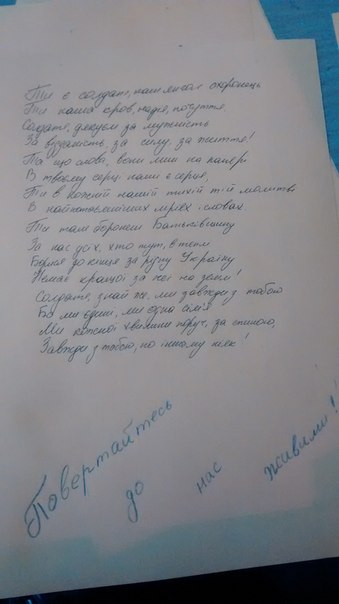 Ти є солдат, наш янгол охоронець
Ти наша кров, надія, почуття
Солдате, дякуєм за мужність
За відданість, за силу, за життя!
Та що слова, вони лиш на папері
В твоєму серці наші є серця,
Ти в кожній нашій тихій тій молитві
В найпотаємніших мріях і словах.
Ти там борониш Батьківщину
За нас усіх, хто тут, в теплі
Борися до кінця за рідну Україну
Немає кращої за неї на землі!
Солдате, знай же, ми завжди з тобою
Бо ми єдині, ми одна сім'я
Ми кожної хвилини поруч, за спиною,
Завжди з тобою, по іншому ніяк!
Повертайтесь до нас живими!